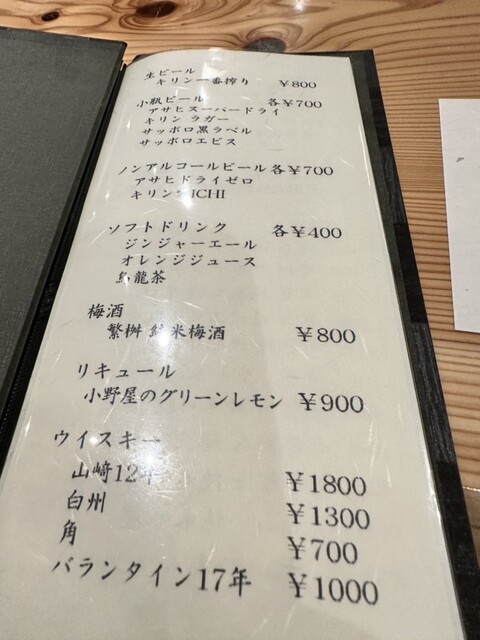 生ビール
キリン一番搾り ￥800
小瓶ビール 各￥700
アサヒスーパードライ
キリン ラガー
サッポロ黒ラベル
サッポロエビス
ノンアルコールビール 各￥700
アサヒドライゼロ
キリン ICHI
ソフトドリンク 各￥400
ジンジャーエール
オレンジジュース
烏龍茶
梅酒
繁桝 純米梅酒 ￥800
リキュール
小野屋のグリーンレモン ￥900
ウイスキー
山崎12年 ￥1800
白州 ￥1300
角 ￥700
バランタイン17年 ￥1000